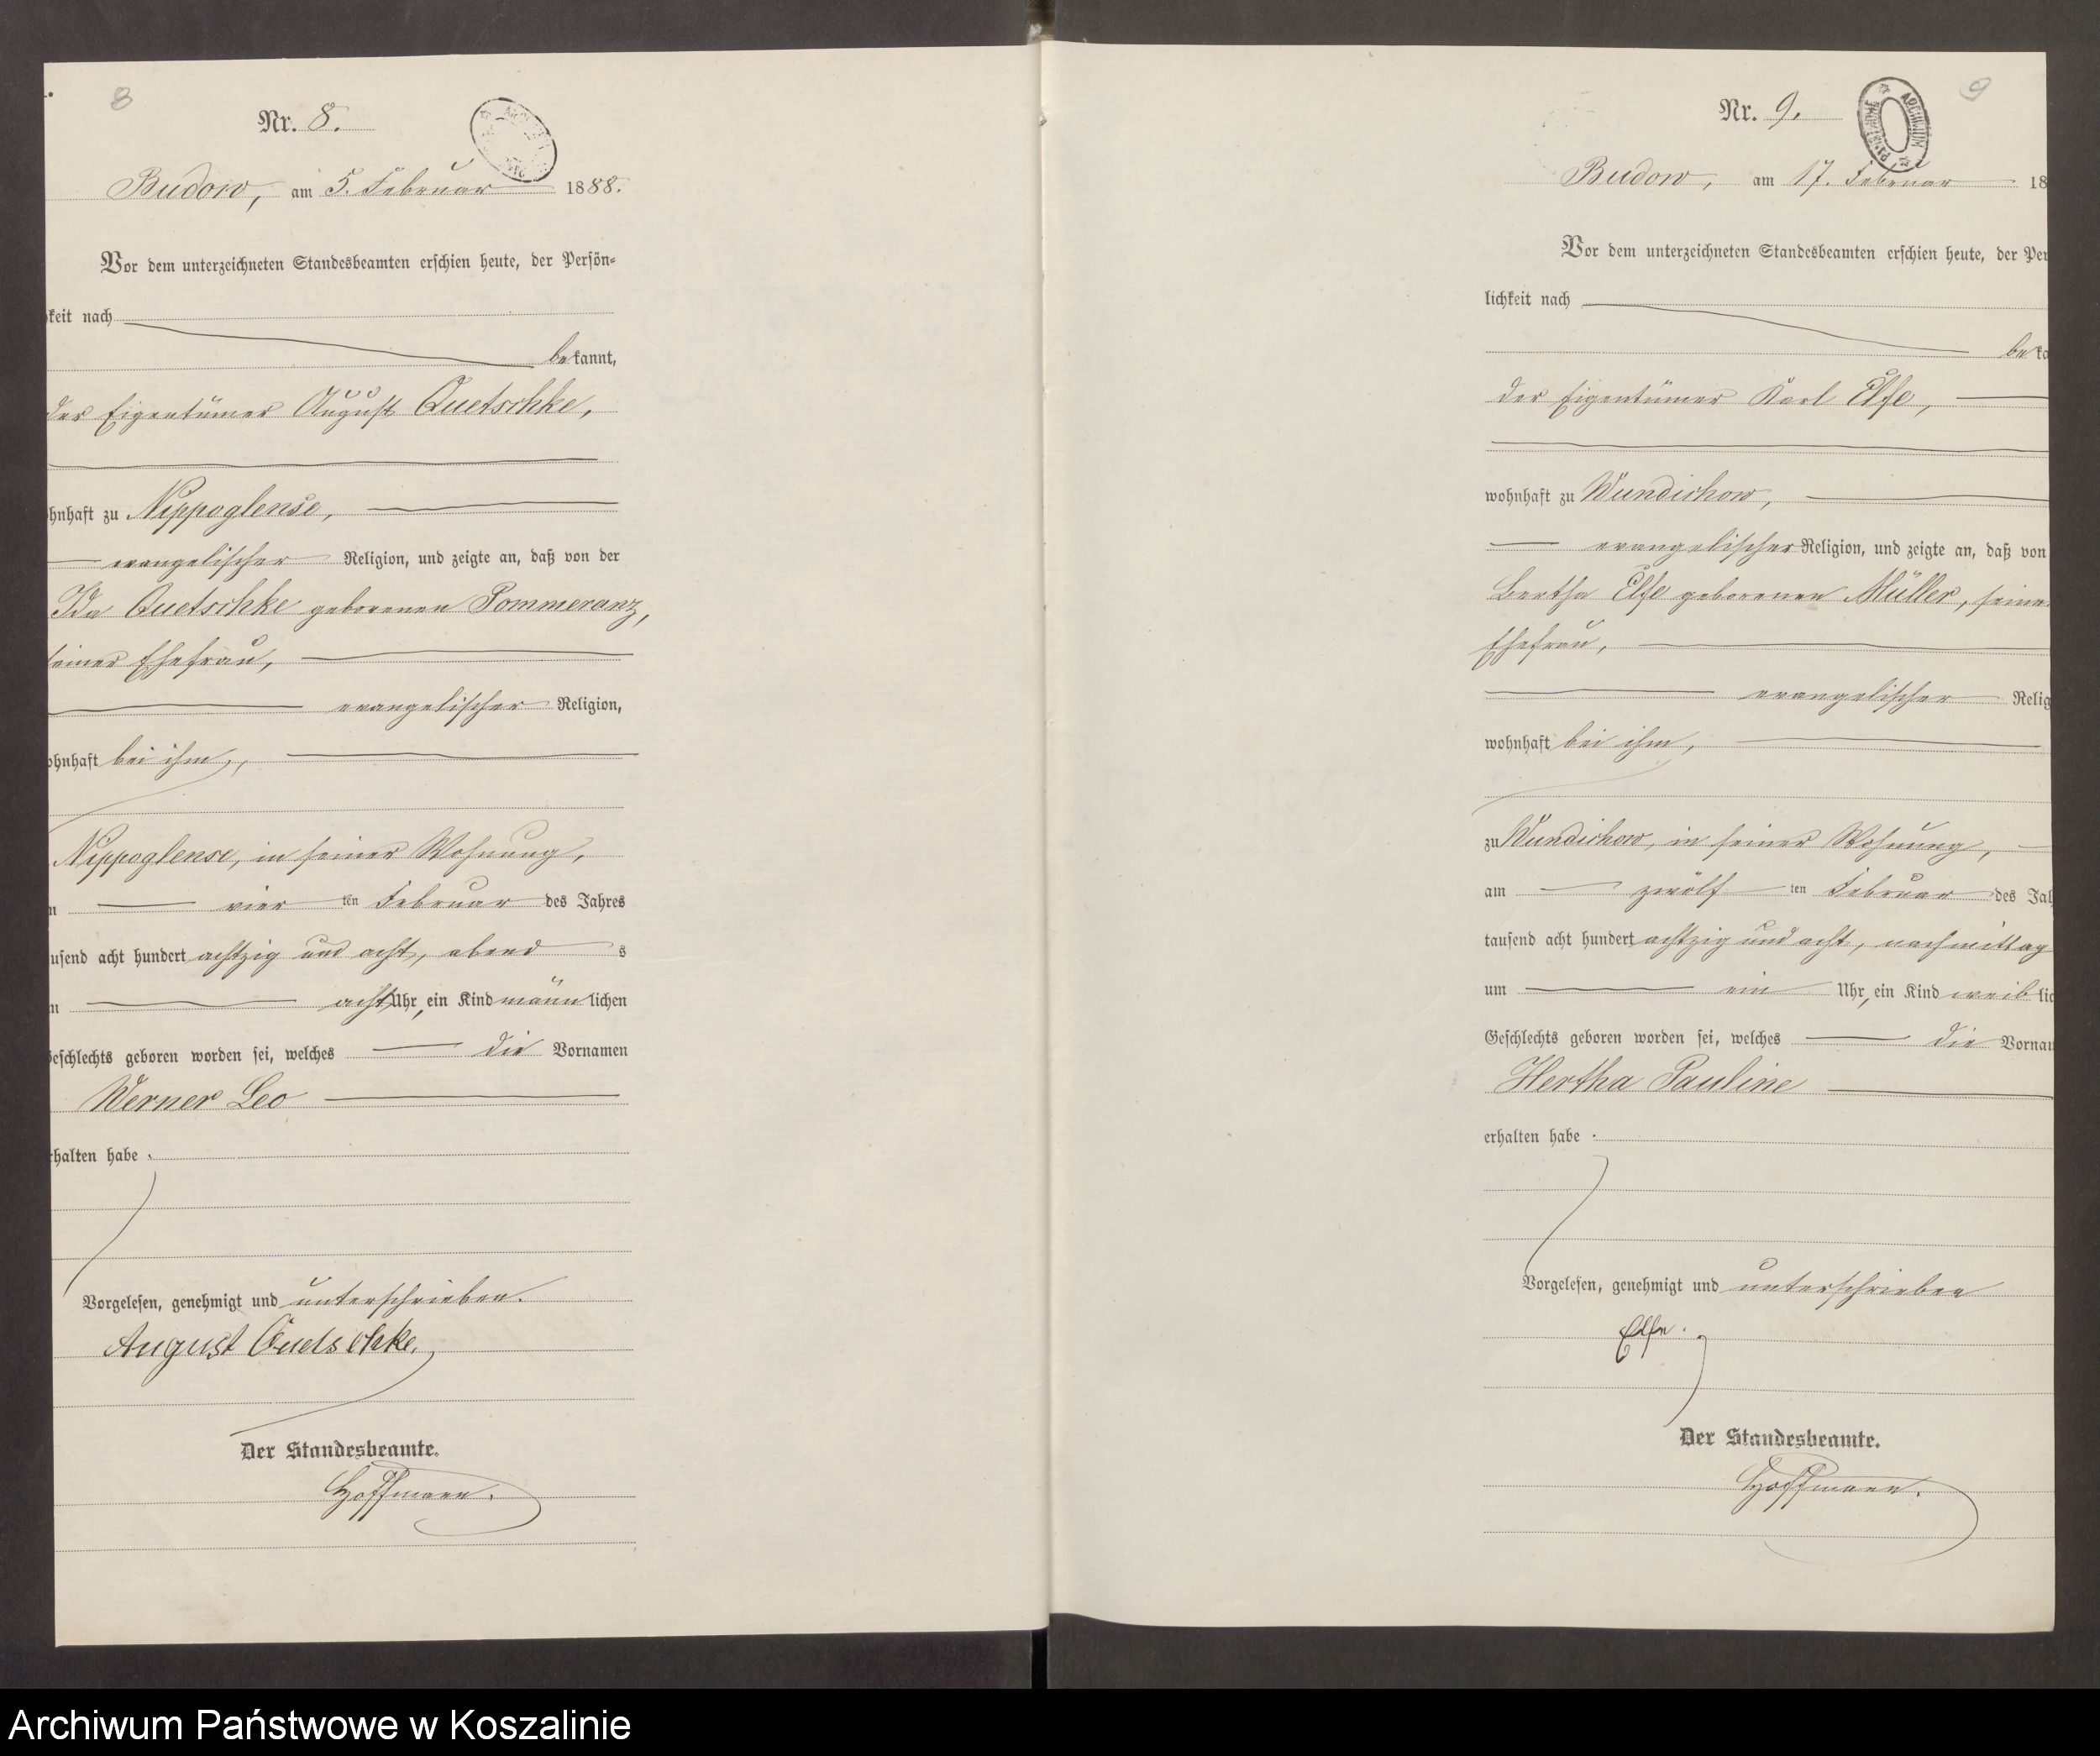 8
Nr. 8.
Budow, am 5. Februar 1888.
Vor dem unterzeichneten Standesbeamten erschien heute, der Persön-
keit nach
bekannt,
der Eigentümer August Quetschke,
hnhaft zu Nippoglense,
evangelischer Religion, und zeigte an, daß von der
Ida Quetschke geborenen Pommeranz,
seiner Ehefrau,
evangelischer Religion,
ohnhaft bei ihm,
Nippoglense, in seiner Wohnung,
vier ten Februar des Jahres
usend acht hundert achtzig und acht, abend s
acht Uhr, ein Kind männlichen
eschlechts geboren worden sei, welches die Vornamen
Werner Leo
rhalten habe.
Vorgelesen, genehmigt und unterschrieben.
August Quetschke,
Der Standesbeamte.
Hoffmann.
9
Nr. 9.
ARCHIWUM PAŃSTWOWE
Budow, am 17. Februar 18
Vor dem unterzeichneten Standesbeamten erschien heute, der Per
lichkeit nach
beka
der Eigentümer Karl Elfe,
wohnhaft zu Wundichow,
evangelischer Religion, und zeigte an, daß von
Bertha Elfe geborenen Müller, seiner
Ehefrau,
evangelischer Relig
wohnhaft bei ihm,
zu Wundichow, in seiner Wohnung,
am zwölf ten Februar des Jah
tausend acht hundert achtzig und acht, nachmittag
um ein Uhr, ein Kind weiblic
Geschlechts geboren worden sei, welches die Vornam
Hertha Pauline
erhalten habe.
Vorgelesen, genehmigt und unterschrieben
Elfe.
Der Standesbeamte.
Hoffmann.
Archiwum Państwowe w Koszalinie